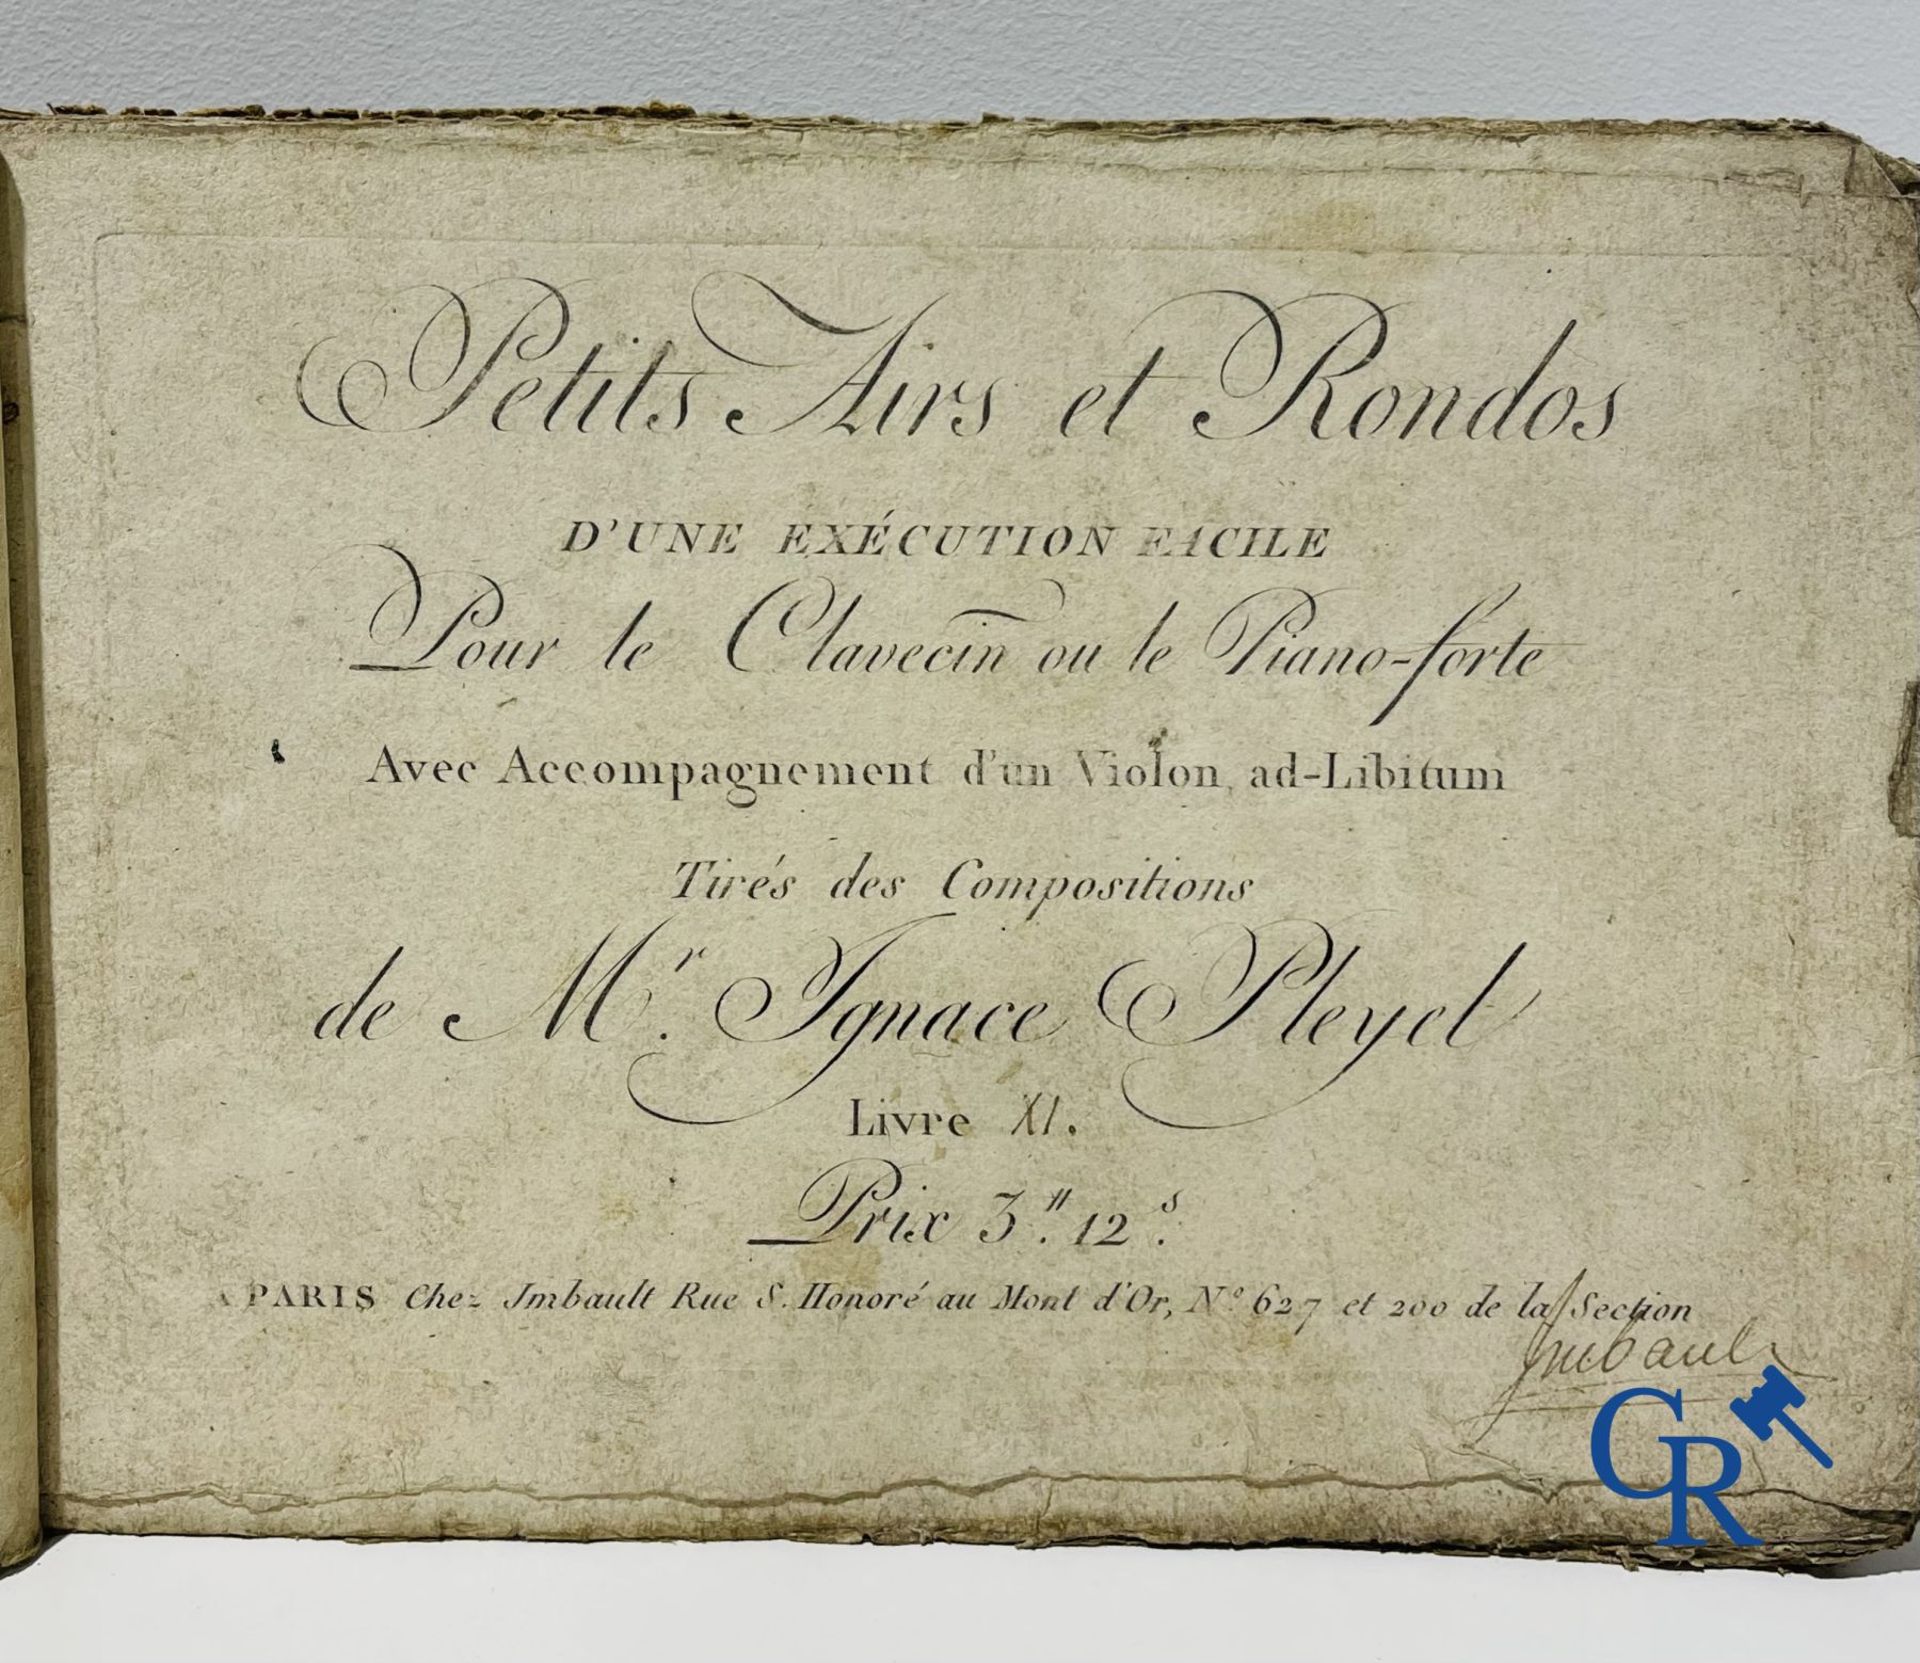 Petits Airs et Rondos
D'UNE EXÉCUTION FACILE
Pour le Clavecin ou le Piano-forte
Avec Accompagnement d'un Violon, ad-Libitum
Tirés des Compositions
de Mr. Ignace Pleyel
Livre XI.
Prix 3.tt 12.s
A PARIS Chez Imbault Rue S. Honoré au Mont d'Or, No 627 et 200 de la Section
Imbault
CR